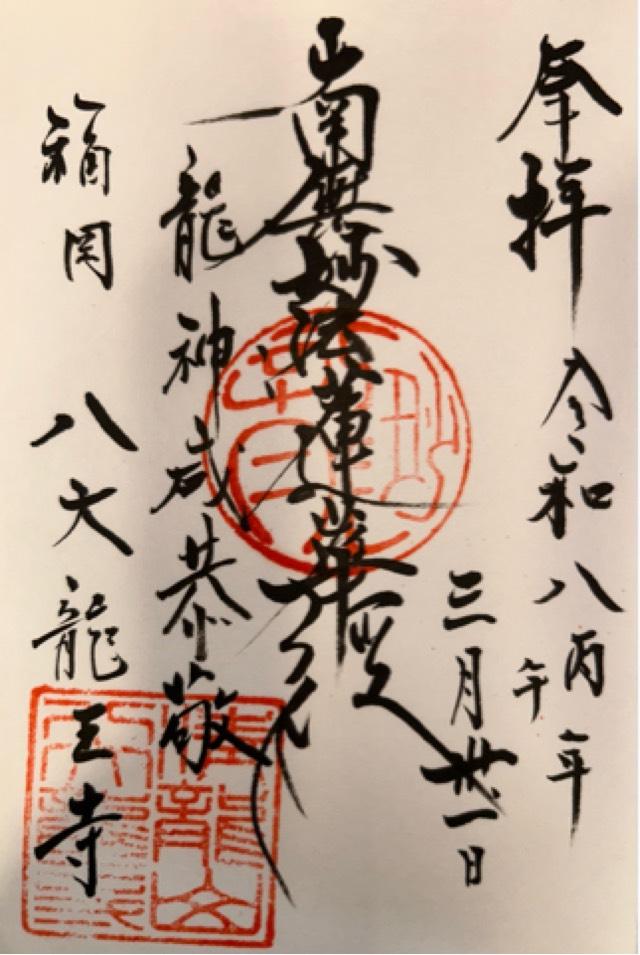 奉拝 令和八丙午年
三月卅一日
南無妙法蓮華経
龍神咸恭敬
福岡 八大龍王寺